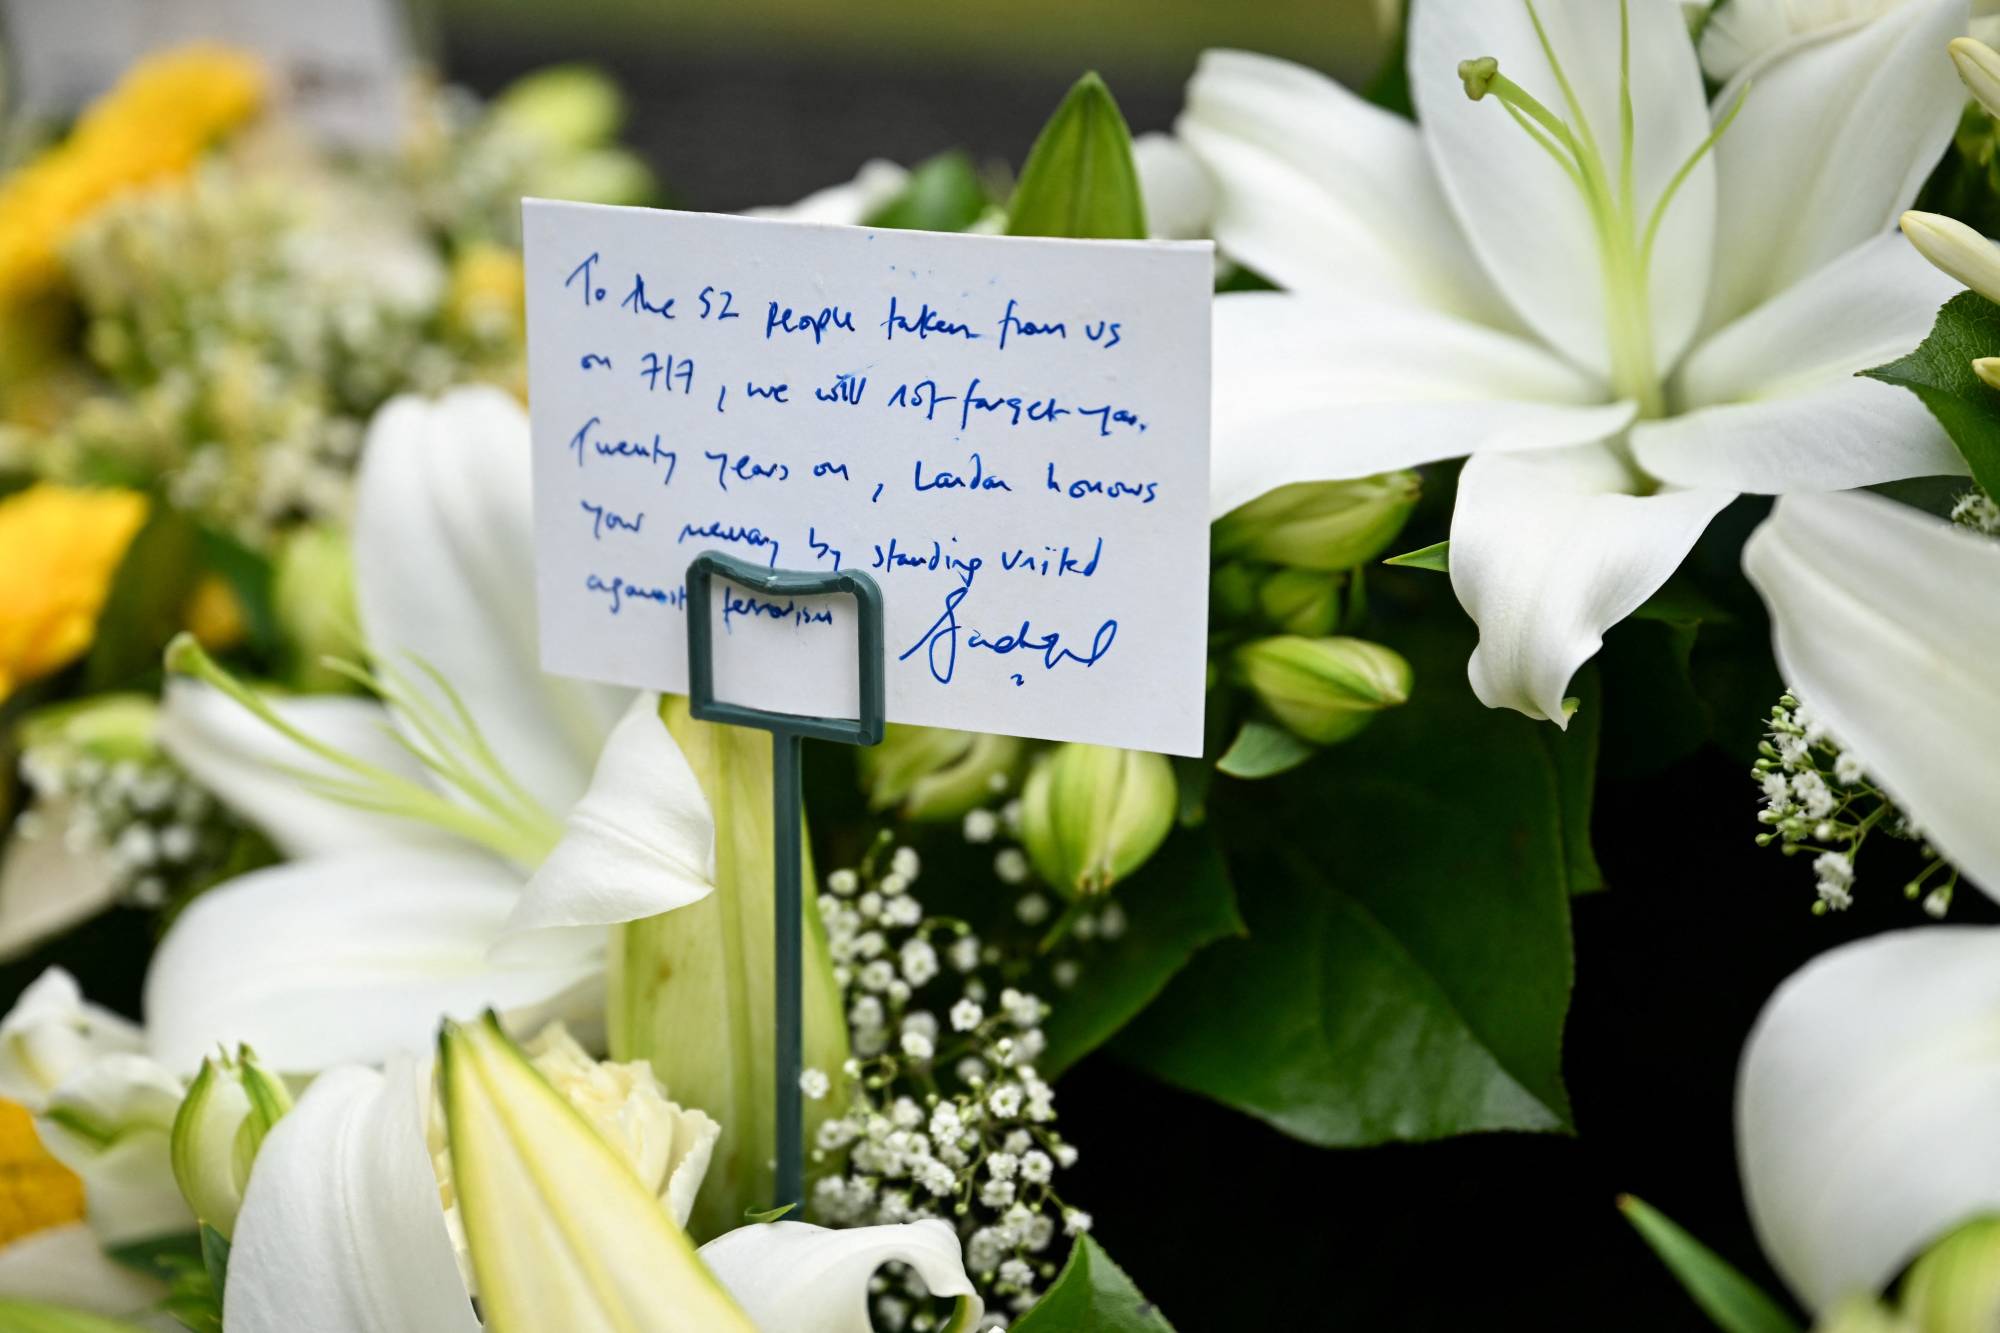 To the 52 people taken from us
on 7/7, we will not forget you.
Twenty years on, London honours
your memory by standing united
against terrorism